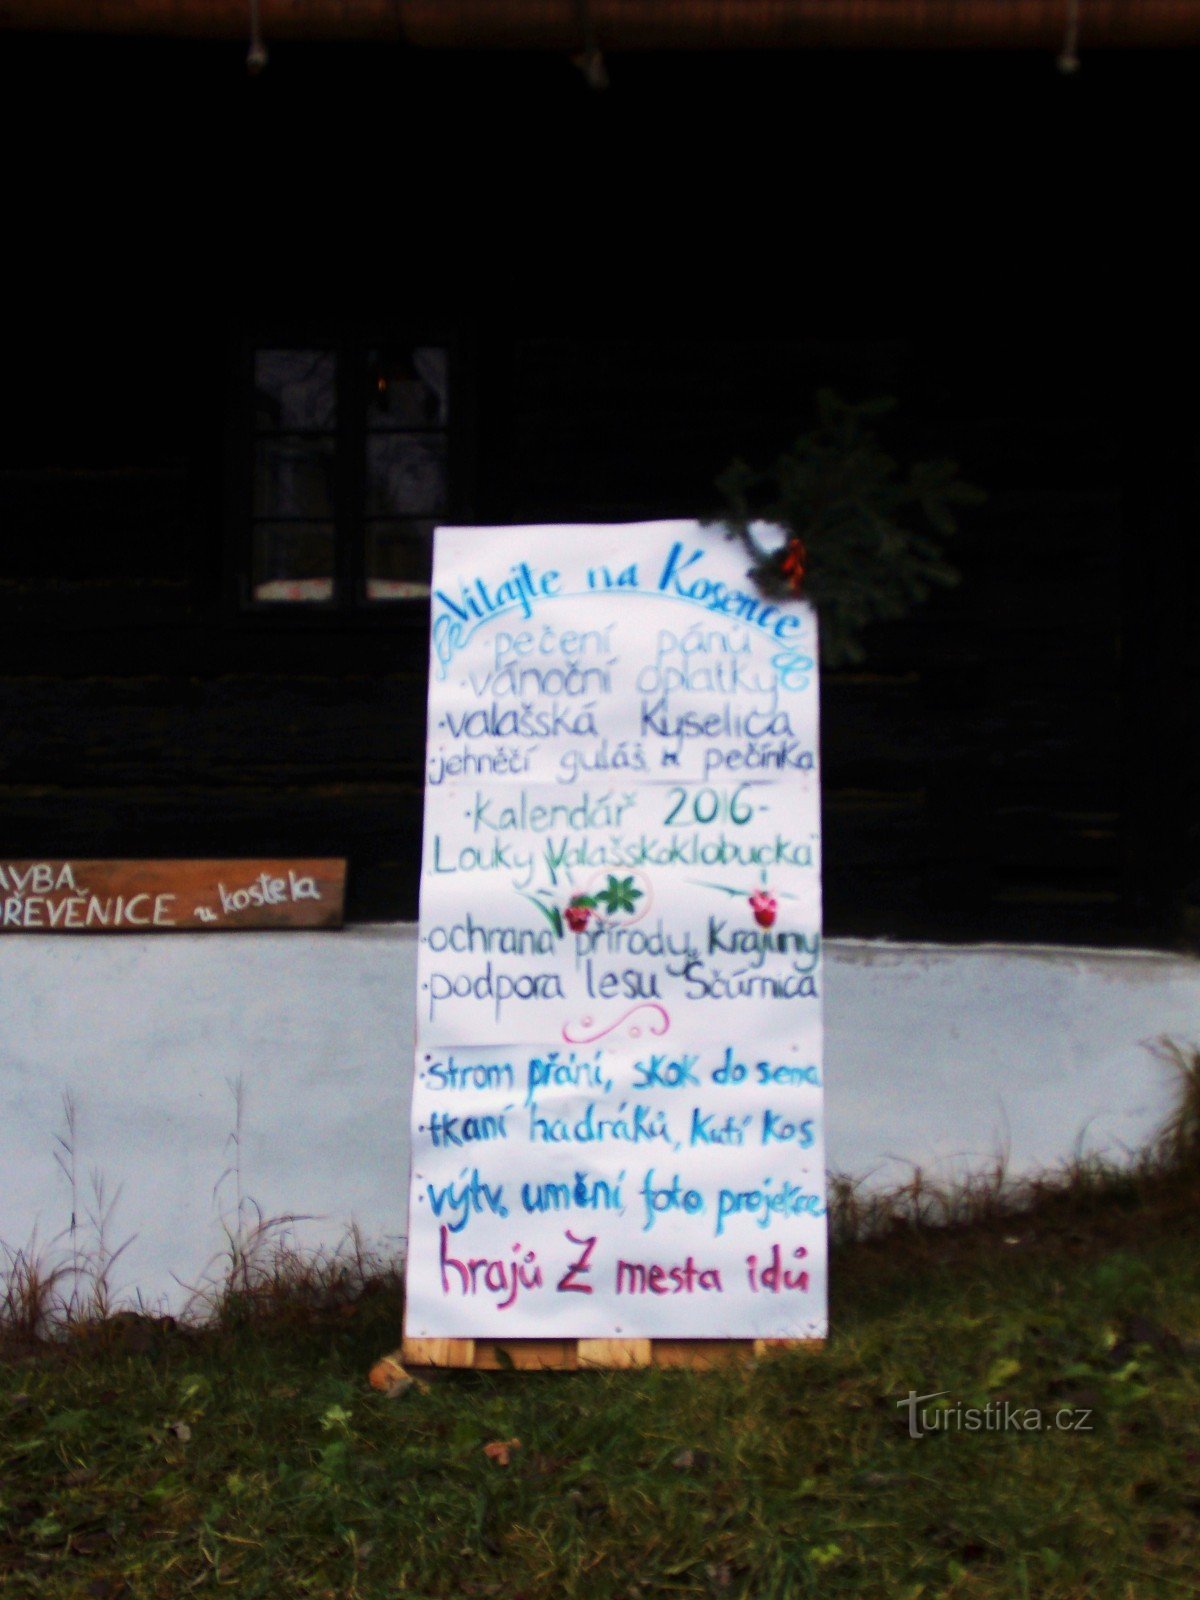 Vítajte na Kosence
·pečení pánů
·vánoční oplatky
·valašská Kyselica
·jehněčí guláš, pečínka
·Kalendář 2016-
Louky Valašskoklobucka
·ochrana přírody, Krajiny
·podpora lesu Ščúrnica
·strom přání, skok do sena
·tkaní hadráků, kutí kos
·výtv. umění, foto projekce
hrajů Z mesta idů
AVBA
DŘEVĚNICE u kostela
Turistika.cz